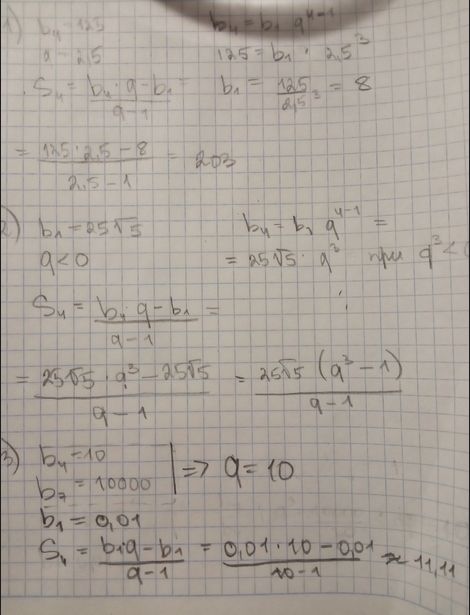 1) b₄ = 125 b₄ = b₁ q⁴⁻¹
q = 2,5 125 = b₁ · 2,5³
S₄ = (b₄ · q − b₁)/(q − 1) = b₁ = 125/2,5³ = 8
= (125 · 2,5 − 8)/(2,5 − 1) = 203
2) b₁ = 25√5 b₄ = b₁ q⁴⁻¹ =
q < 0 = 25√5 · q³ при q³ <
S₄ = (b₄ · q − b₁)/(q − 1) =
= (25√5 · q³ − 25√5)/(q − 1) = 25√5 (q³ − 1)/(q − 1)
3) b₄ = 10
b₇ = 10000 | => q = 10
b₁ = 0,01
S₄ = (b₁q − b₁)/(q − 1) = (0,01 · 10 − 0,01)/(10 − 1) ≈ 11,11